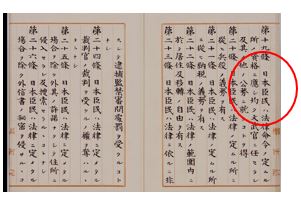 第十九條 日本臣民ハ法律命令ノ定ムル
所ノ資格ニ應シ均ク文武官ニ任セラレ
及其他ノ公務ニ就クコトヲ得
第二十條 日本臣民ハ法律ノ定ムル所ニ
從ヒ兵役ノ義務ヲ有ス
第二十一條 日本臣民ハ法律ノ定ムル所
ニ從ヒ納税ノ義務ヲ有ス
第二十二條 日本臣民ハ法律ノ範圍内ニ
於テ居住及移轉ノ自由ヲ有ス
第二十三條 日本臣民ハ法律ニ依ルニ非
スシテ逮捕監禁審問處罰ヲ受クルコト
ナシ
第二十四條 日本臣民ハ法律ニ定メタル
裁判官ノ裁判ヲ受クルノ權ヲ奪ハルヽコトナシ
第二十五條 日本臣民ハ法律ニ定メタル
場合ヲ除ク外其ノ許諾ナクシテ住所ニ
侵入セラレ及捜索セラルヽコトナシ
第二十六條 日本臣民ハ法律ニ定メタル
場合ヲ除ク外信書ノ祕密ヲ侵